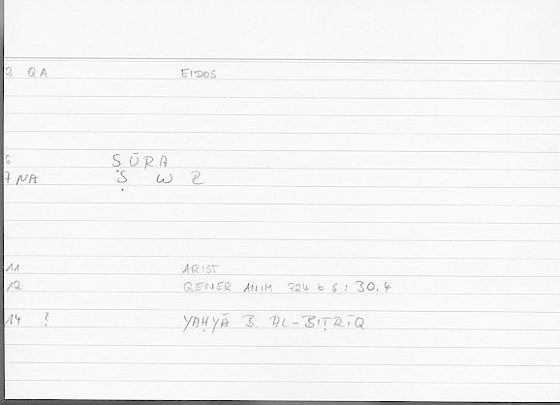 2 QA EIDOS
6 ṢŪRA
7 NA Ṣ W R
11 ARIST
12 GENER ANIM 724 b 6 : 30.4
14 ? YAḤYĀ B. AL-BIṬRĪQ